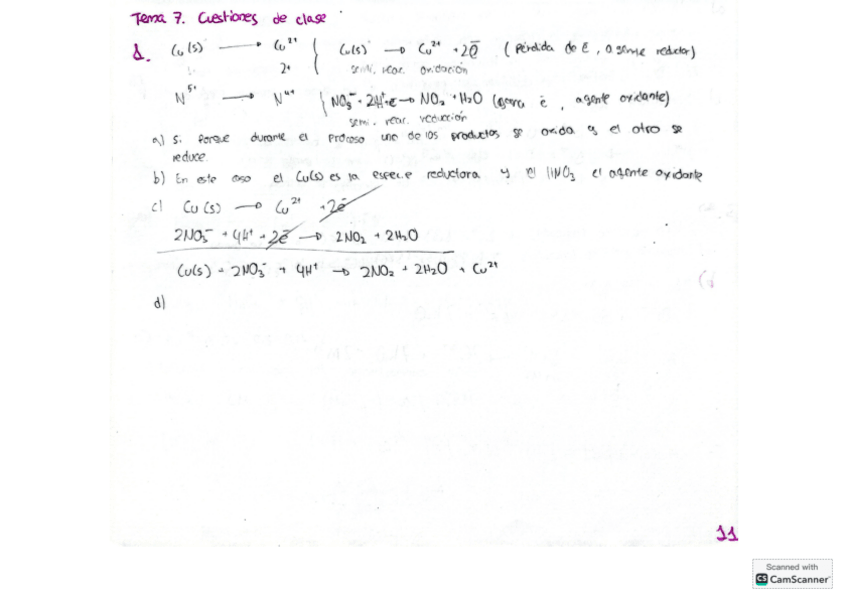 Tema 7. Cuestiones de clase
1. Cu(s) → Cu²⁺ { Cu(s) → Cu²⁺ + 2e̅ (Pérdida de e̅, agente reductor)
2+ semi. reac. oxidación
N⁵⁺ → N⁴⁺ { NO₃⁻ + 2H⁺ + e → NO₂ + H₂O (gana e̅, agente oxidante)
semi. reac. reducción
a) Si porque durante el proceso uno de los productos se oxida y el otro se
reduce.
b) En este caso el Cu(s) es la especie reductora y el HNO₃ el agente oxidante
c) Cu(s) → Cu²⁺ + 2e̅
2NO₃⁻ + 4H⁺ + 2e̅ → 2NO₂ + 2H₂O
Cu(s) + 2NO₃⁻ + 4H⁺ → 2NO₂ + 2H₂O + Cu²⁺
d)
11
Scanned with
CS CamScanner